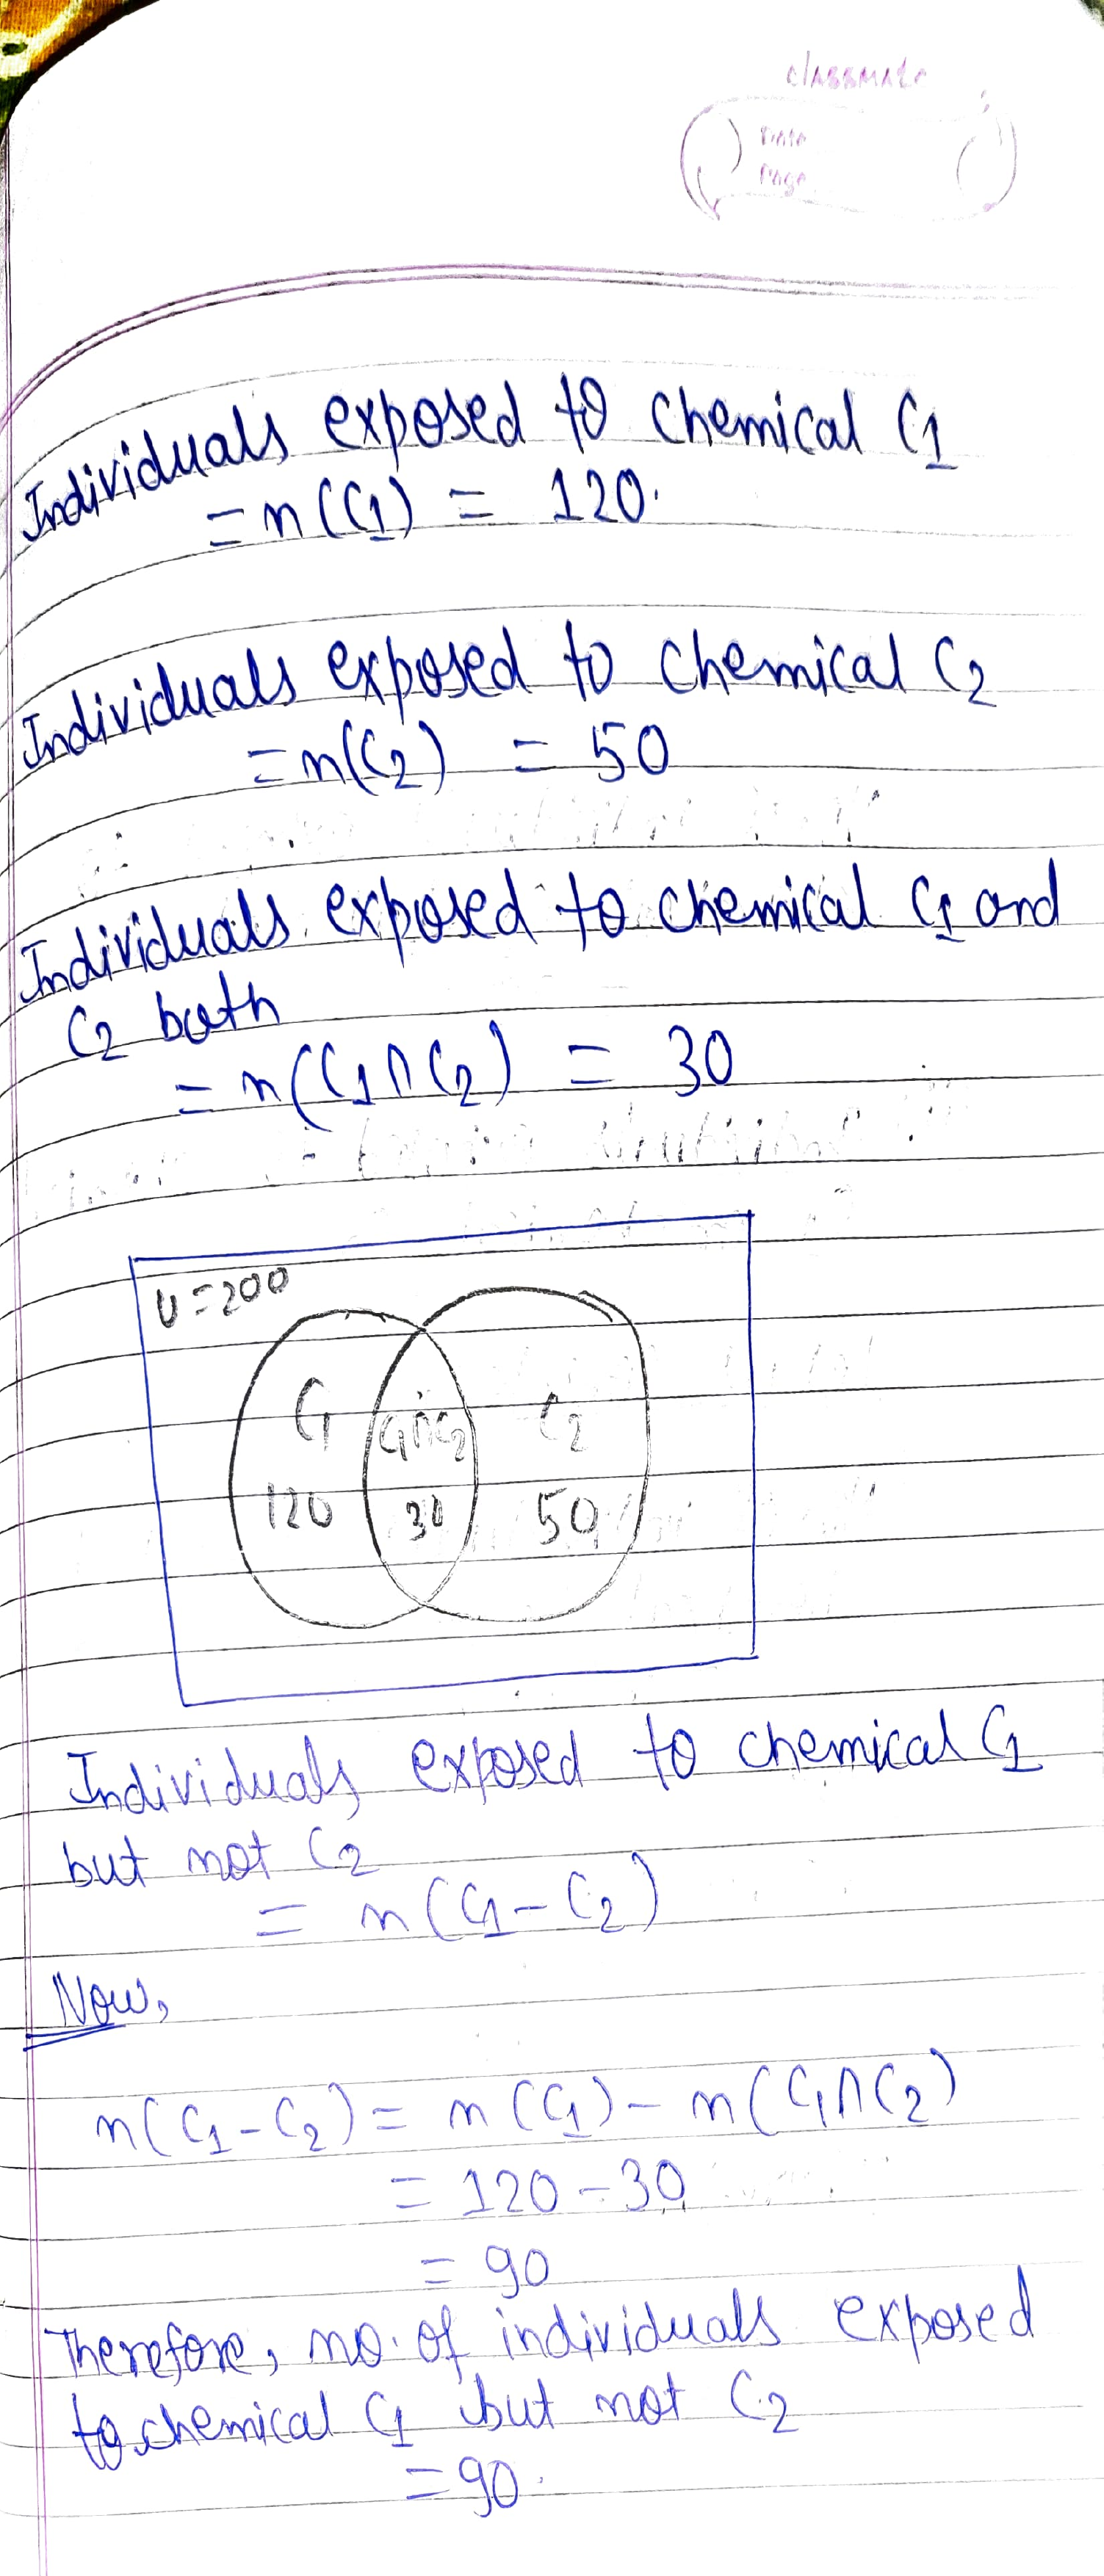 classmate
Date
Page
Individuals exposed to chemical C1
= n(C1) = 120.
Individuals exposed to chemical C2
= n(C2) = 50
Individuals exposed to chemical C1 and
C2 both
= n(C1∩C2) = 30
U = 200
C1 C1∩C2 C2
120 30 50
Individuals exposed to chemical C1
but not C2
= n(C1-C2)
Now,
n(C1-C2) = n(C1) - n(C1∩C2)
= 120-30
= 90
Therefore, no. of individuals exposed
to chemical C1 but not C2
= 90.